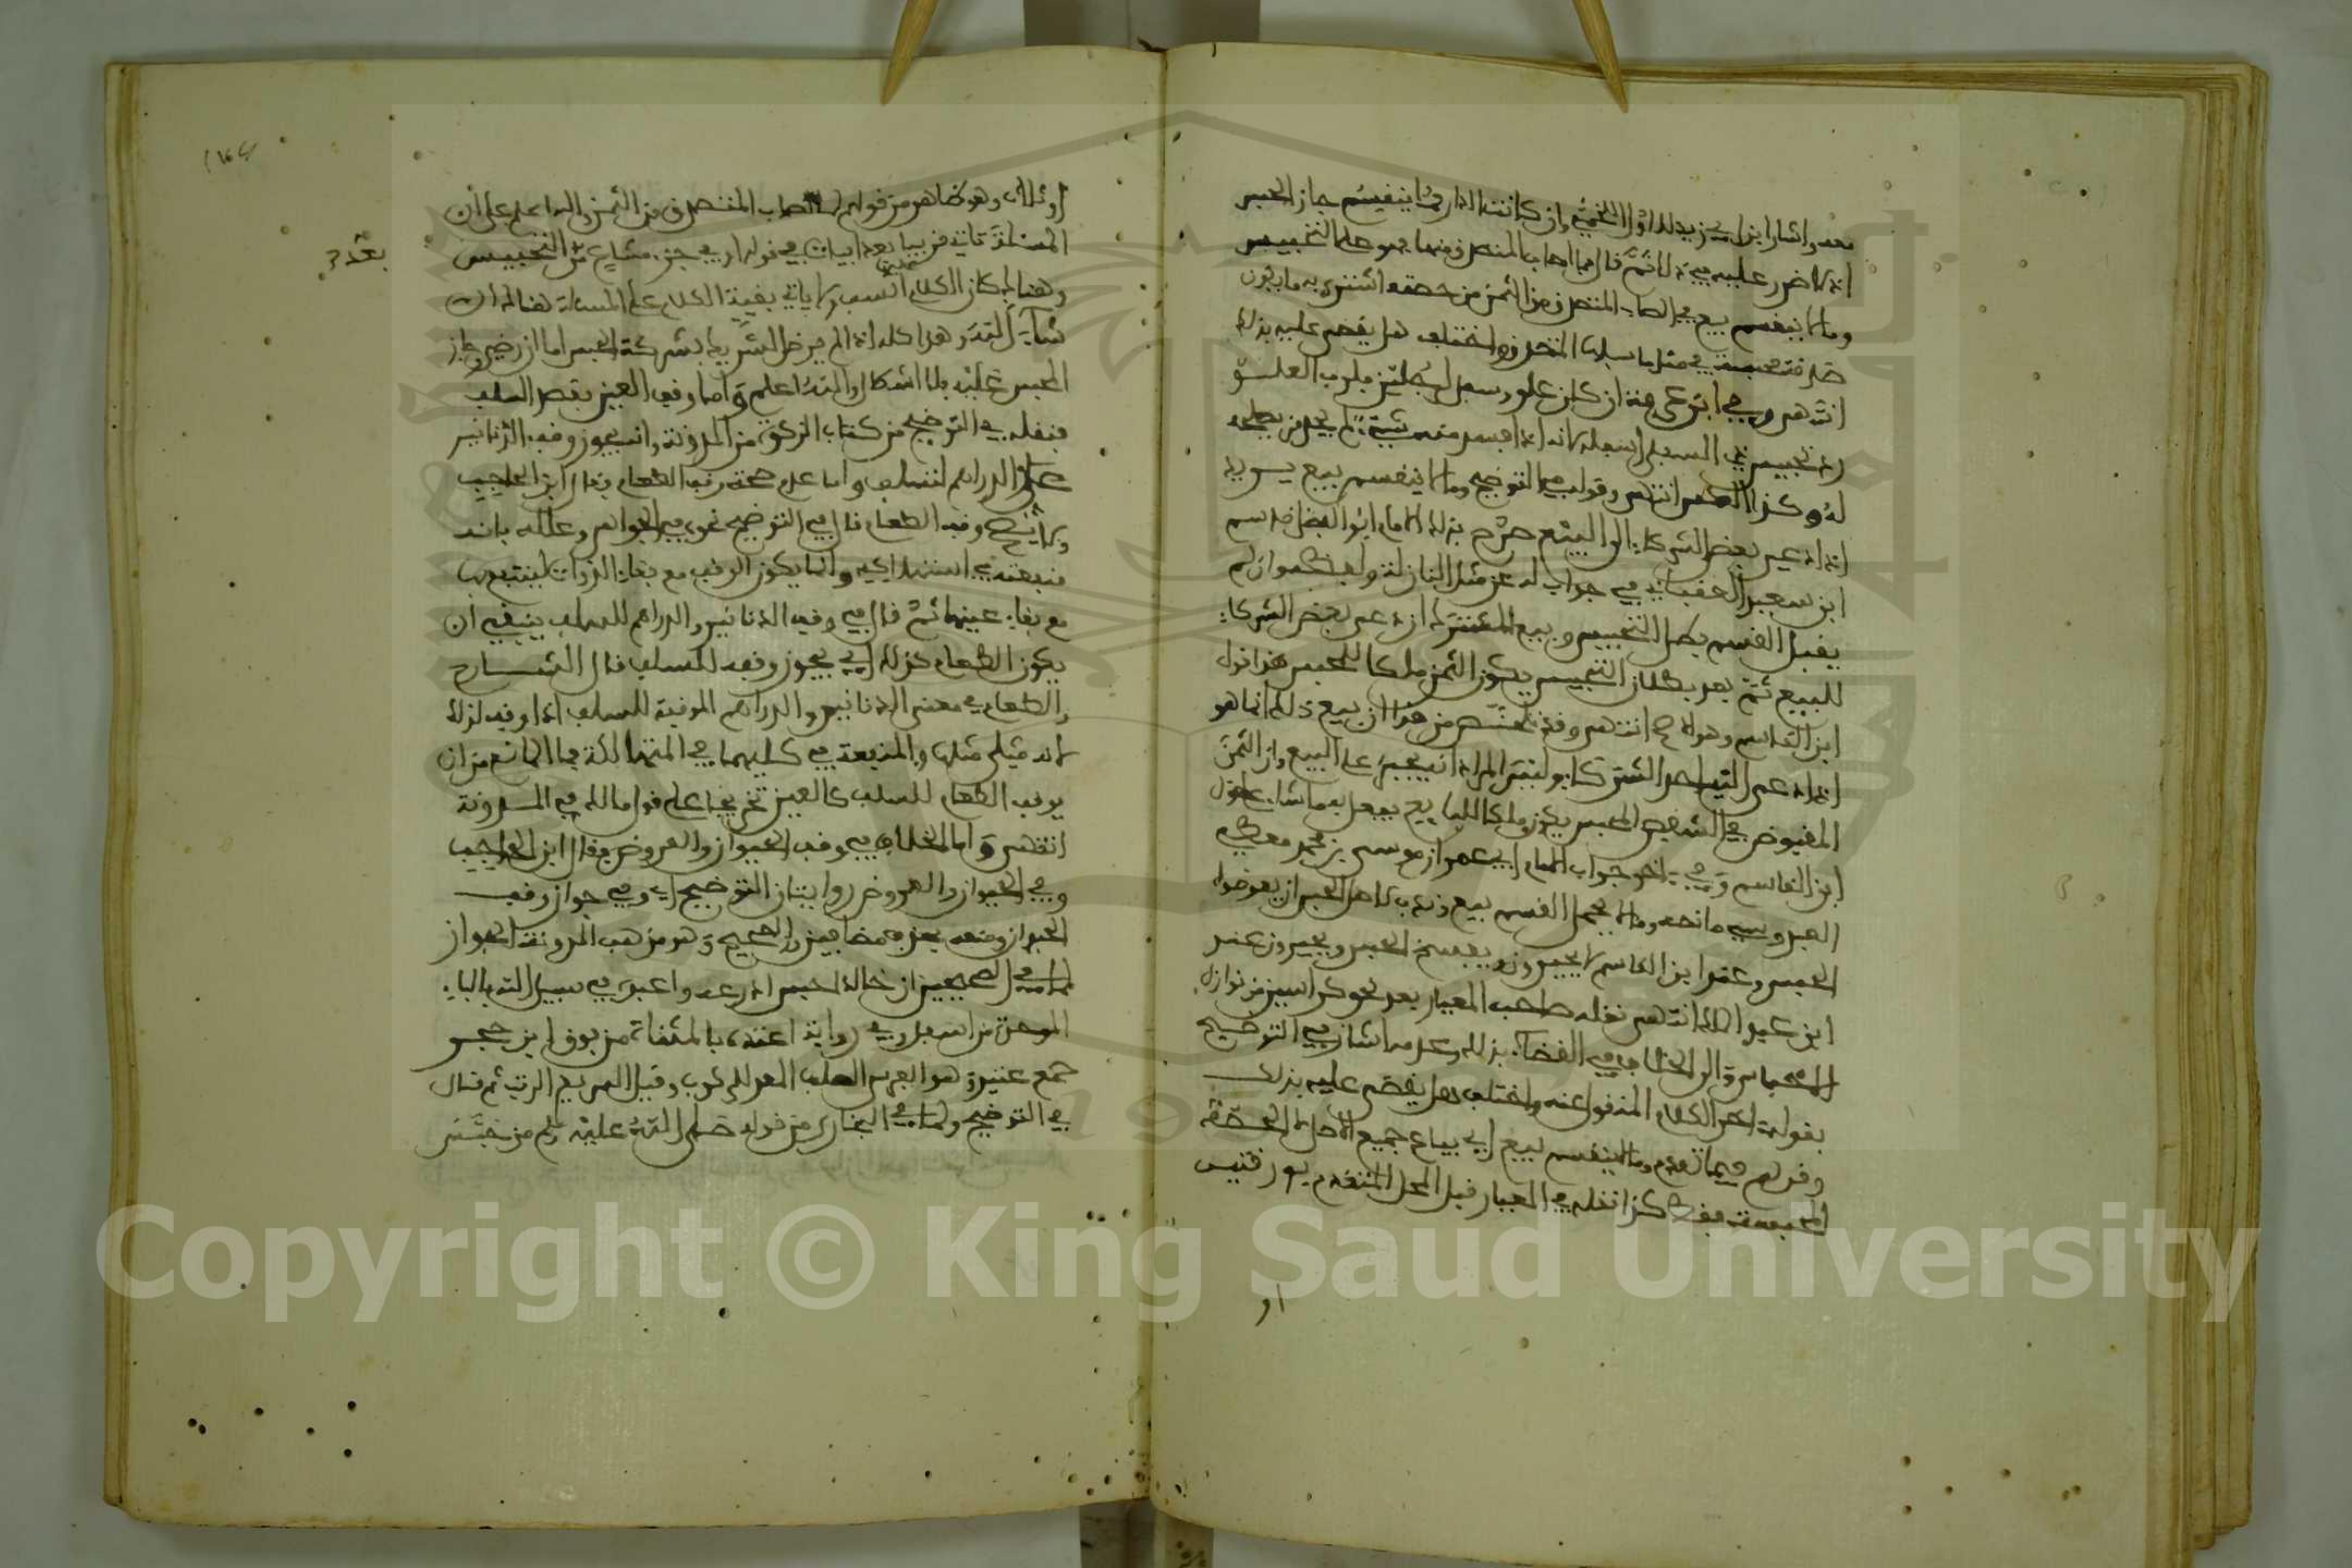 معه واشار ابن زيد لذا قول اللخمي وان كانت الدار مما ينقسم جاز الحبس
اذ لا ضرر عليه في ذلك ثم قال فما اصاب المتصدق منها فهو على التحبيس
وما لا ينقسم بيع فما اصاب المتصدق من الثمن من حصته اشترى به ما يكون
صدقة محبسة في مثل ما سبلها المتصدق واختلف هل يقضى عليه بذلك
انتهى وفي ابن عرفة ان كان علو وسفل لرجلين فلرب العلو
رد تحبيس ذي السفل اسفله لانه اذا افسد منه شيء لم يجد من يصلحه
له وكذا العكس انتهى وقوله في التوضيح وما لا ينقسم بيع يريد
اذا دعى بعض الشركاء الى البيع صرح بذلك الامام ابو الفضل قاسم
ابن سعيد العقباني في جواب له عن مثل النازلة ولفظه وان لم
يقبل القسم بطل التحبيس وبيع المشترك ان دعى بعض الشركاء
للبيع ثم بعد بطلان التحبيس يكون الثمن ملكا للمحبس هذا قول
ابن القاسم وهو انتهى وقد من هذا ان بيع ذلك انما هو
اذا دعى الى احد الشركاء وليس المراد انه يجبر على البيع وان الثمن
المقبوض في الشقص المحبس يكون ملكا للبايع يفعل به ما شاء على قول
ابن القاسم وفي اخر جواب الامام ابي عمران موسى بن محمد معطي
العبدوسي ما نصه وما لا يحمل القسم بيع وندب لاهل الحبس ان يعوضوا
الحبس وعند ابن القاسم لا يجبرون ويفسخ الحبس ويجبرون عند
ابن عبد الملك انتهى نقله صاحب المعيار بعد نحو كراسين من نوازل
الاحباس والى الخلاف في القضاء بذلك وعدمه اشار في التوضيح
بقوله اخر الكلام المنقول عنه واختلف هل يقضى عليه بذلك
وقولهم فيما تقدم وما لا ينقسم بيع اي يباع جميع الاصل لا الحصة
المحبسة فقط كذا نقله في المعيار قبل المحل المتقدم بورقتين
او
او ثلاث وهو ظاهر من قولهم لما اصاب المتصدق من الثمن والله اعلم على ان
المسئلة تاتي قريبا بعد ابيات في قوله او في جزء مشاع من التحبيس
بعد
وهناك كان الكلام انسب وياتي بقية الكلام على المسئلة هنالك ان
شاء الله وهذا كله اذا لم يرض الشريك بشركة الحبس اما ان رضي جاز
الحبس عليه بلا اشكال والله اعلم واما وقف العين بقصد السلف
فنقله في التوضيح من كتاب الزكاة من المدونة وانه يجوز وقف الدنانير
والدراهم لتسلف واما عدم صحة وقف الطعام فقال ابن الحاجب
ولا يصح وقف الطعام قال في التوضيح نحوه في الجواهر وعلله بان
منفعته في استهلاكه وانما يكون الوقف مع بقاء الذوات لينتفع بها
مع بقاء عينها ثم قال في وقف الدنانير والدراهم للسلف ينبغي ان
يكون الطعام كذلك اي يجوز وقفه للسلف قال الشارح
والطعام في معنى الدنانير والدراهم الموقفة للسلف اذا وقف لذلك
لانه مثلي مثلها والمنفعة في كليهما في استهلاكه فما المانع من ان
يوقف الطعام للسلف كالعين تخريجا على قول مالك في المدونة
انتهى واما الخلاف في وقف الحيوان والعروض فقال ابن الحاجب
وفي الحيوان والعروض روايتان التوضيح اي وفي جواز وقف
الحيوان ومنعه والصحيح وهو مذهب المدونة الجواز
لما في الصحيحين ان خالدا حبس ادرعه واعبده في سبيل الله بالباء
الموحدة من اسفل وفي رواية اعتده بالمثناة من فوق ابن حجر
جمع عتيد وهو الفرس الصلب المعد للركوب وقيل السريع الوثب ثم قال
في التوضيح ولما في البخاري من قوله صلى الله عليه وسلم من حبس
Copyright © King Saud University